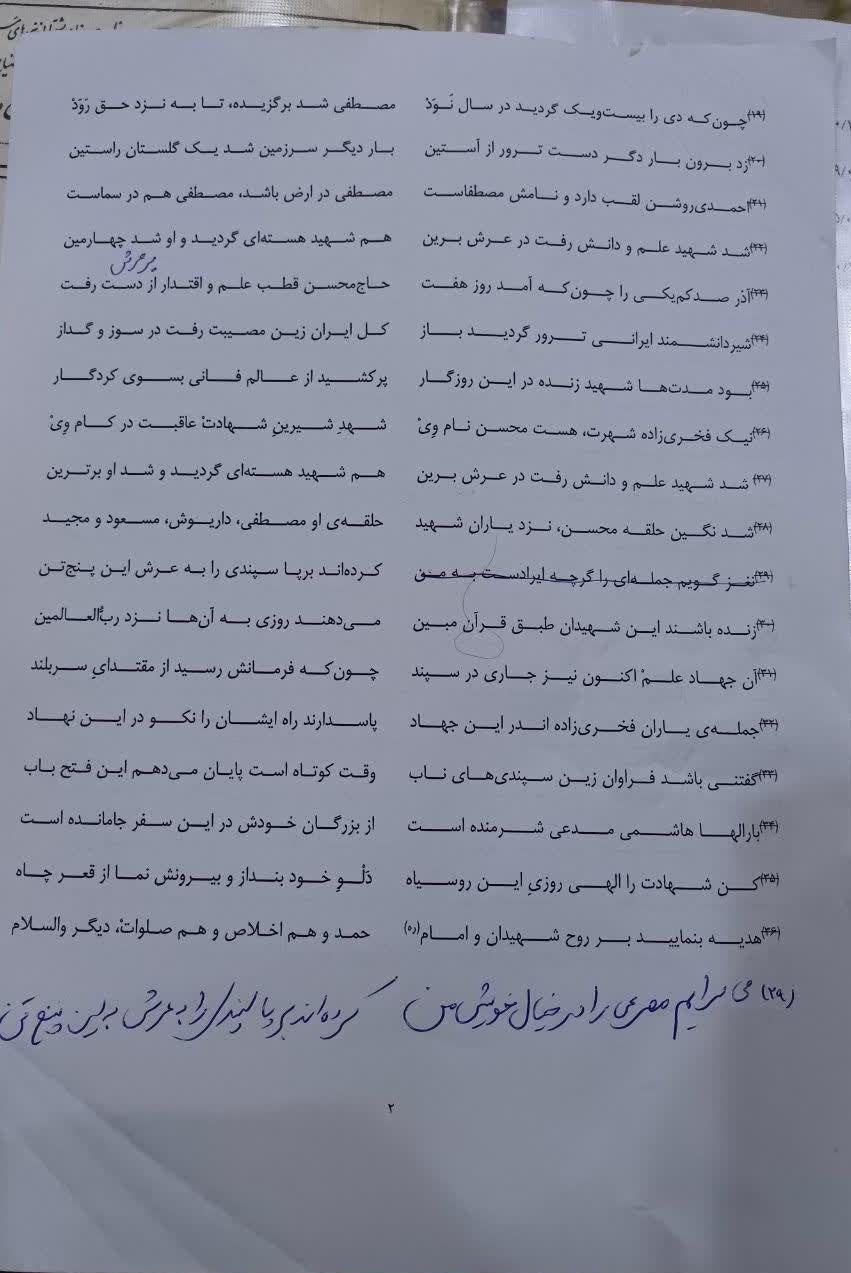 (۱۹) چون‌که دی را بیست‌ویک گردید در سال نَوَدْ مصطفی شد برگزیده، تا به نزد حق رَوَدْ
(۲۰) زد برون بار دگر دست ترور از آستین بار دیگر سرزمین شد یک گلستان راستین
(۲۱) احمدی‌روشن لقب دارد و نامش مصطفاست مصطفی در ارض باشد، مصطفی هم در سماست
(۲۲) شد شهید علم و دانش رفت در عرش برین هم شهید هسته‌ای گردید و او شد چهارمین
(۲۳) آذر صدکم‌یکی را چون‌که آمد روز هفت حاج‌محسن قطب علم و اقتدار از دست رفت
(۲۴) شیردانشمند ایرانی ترور گردید باز کل ایران زین مصیبت رفت در سوز و گداز
(۲۵) بود مدت‌ها شهید زنده در این روزگار پرکشید از عالم فانی بسوی کردگار
(۲۶) نیک فخری‌زاده شهرت، هست محسن نام وِیْ شهدِ شیرینِ شهادتْ عاقبت در کام وِیْ
(۲۷) شد شهید علم و دانش رفت در عرش برین هم شهید هسته‌ای گردید و شد او برترین
(۲۸) شد نگین حلقه محسن، نزد یاران شهید حلقه‌ی او مصطفی، داریوش، مسعود و مجید
(۲۹) نغز گویم جمله‌ای را گرچه ایرادست به من کرده‌اند برپا سپندی را به عرش این پنج‌تن
(۳۰) زنده باشند این شهیدان طبق قرآن مبین می‌دهند روزی به آن‌ها نزد ربُّ‌العالمین
(۳۱) آن جهاد علمْ اکنون نیز جاری در سپند چون‌که فرمانش رسید از مقتدایِ سربلند
(۳۲) جمله‌ی یاران فخری‌زاده اندر این جهاد پاسدارند راه ایشان را نکو در این نهاد
(۳۳) گفتنی باشد فراوان زین سپندی‌های ناب وقت کوتاه است پایان می‌دهم این فتح باب
(۳۴) بارالها هاشمی مدعی شرمنده است از بزرگان خودش در این سفر جامانده است
(۳۵) کن شهادت را الهی روزیِ این روسیاه دَلْوِ خود بنداز و بیرونش نما از قعر چاه
(۳۶) هدیه بنمایید بر روح شهیدان و امام(ره) حمد و هم اخلاص و هم صلواتْ، دیگر والسلام
(۲۹) می سرایم مصرعی را در خیال خویش من کرده‌اند برپا سپندی را به عرش این پنج تن
۲